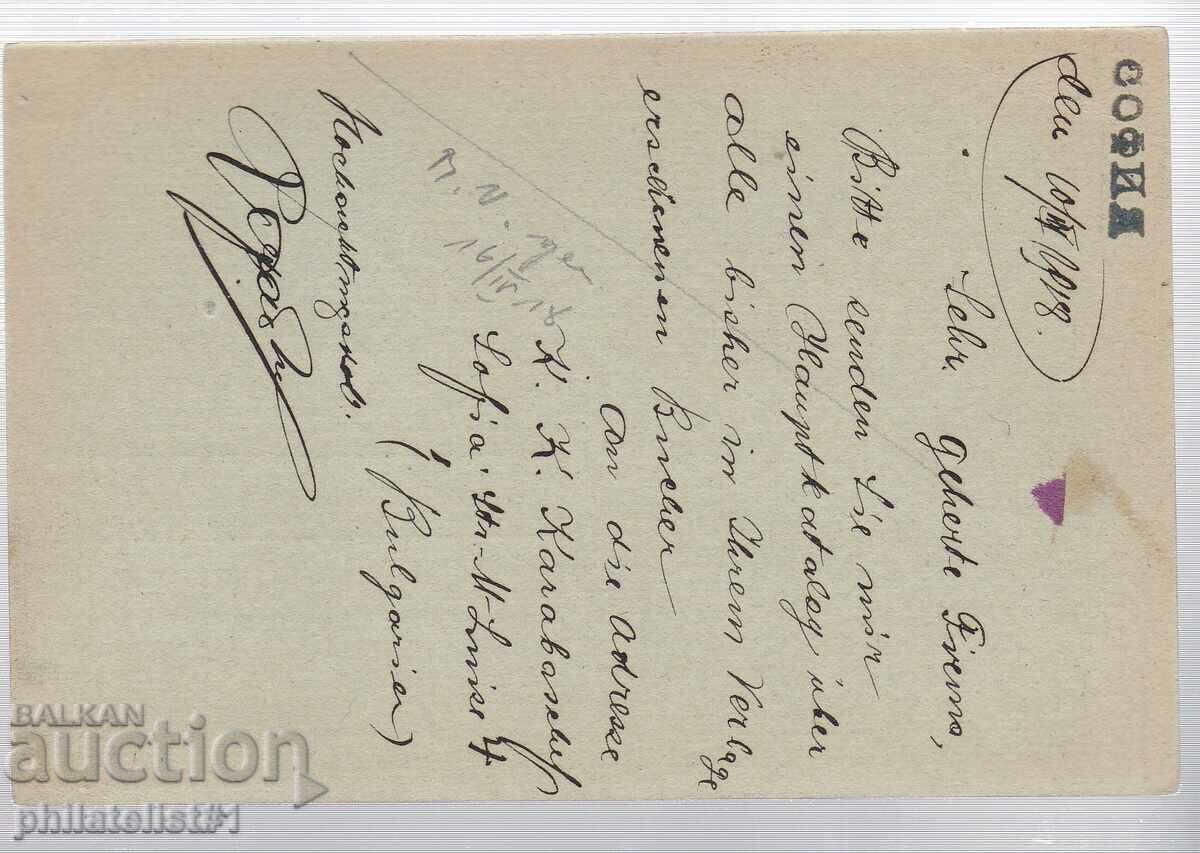 СОФИЯ
den 10/IV 1918.
Sehr. geherte Firma,
Bitte senden Sie mir
einen Hauptkatalog über
alle bisher in Ihrem Verlage
erschienenen Bücher
an die Adresse
K. K. Karabaschef
Sofia. Str. M-Luise 4
(Bulgarien)
BALKAN
auction
philatelist#1